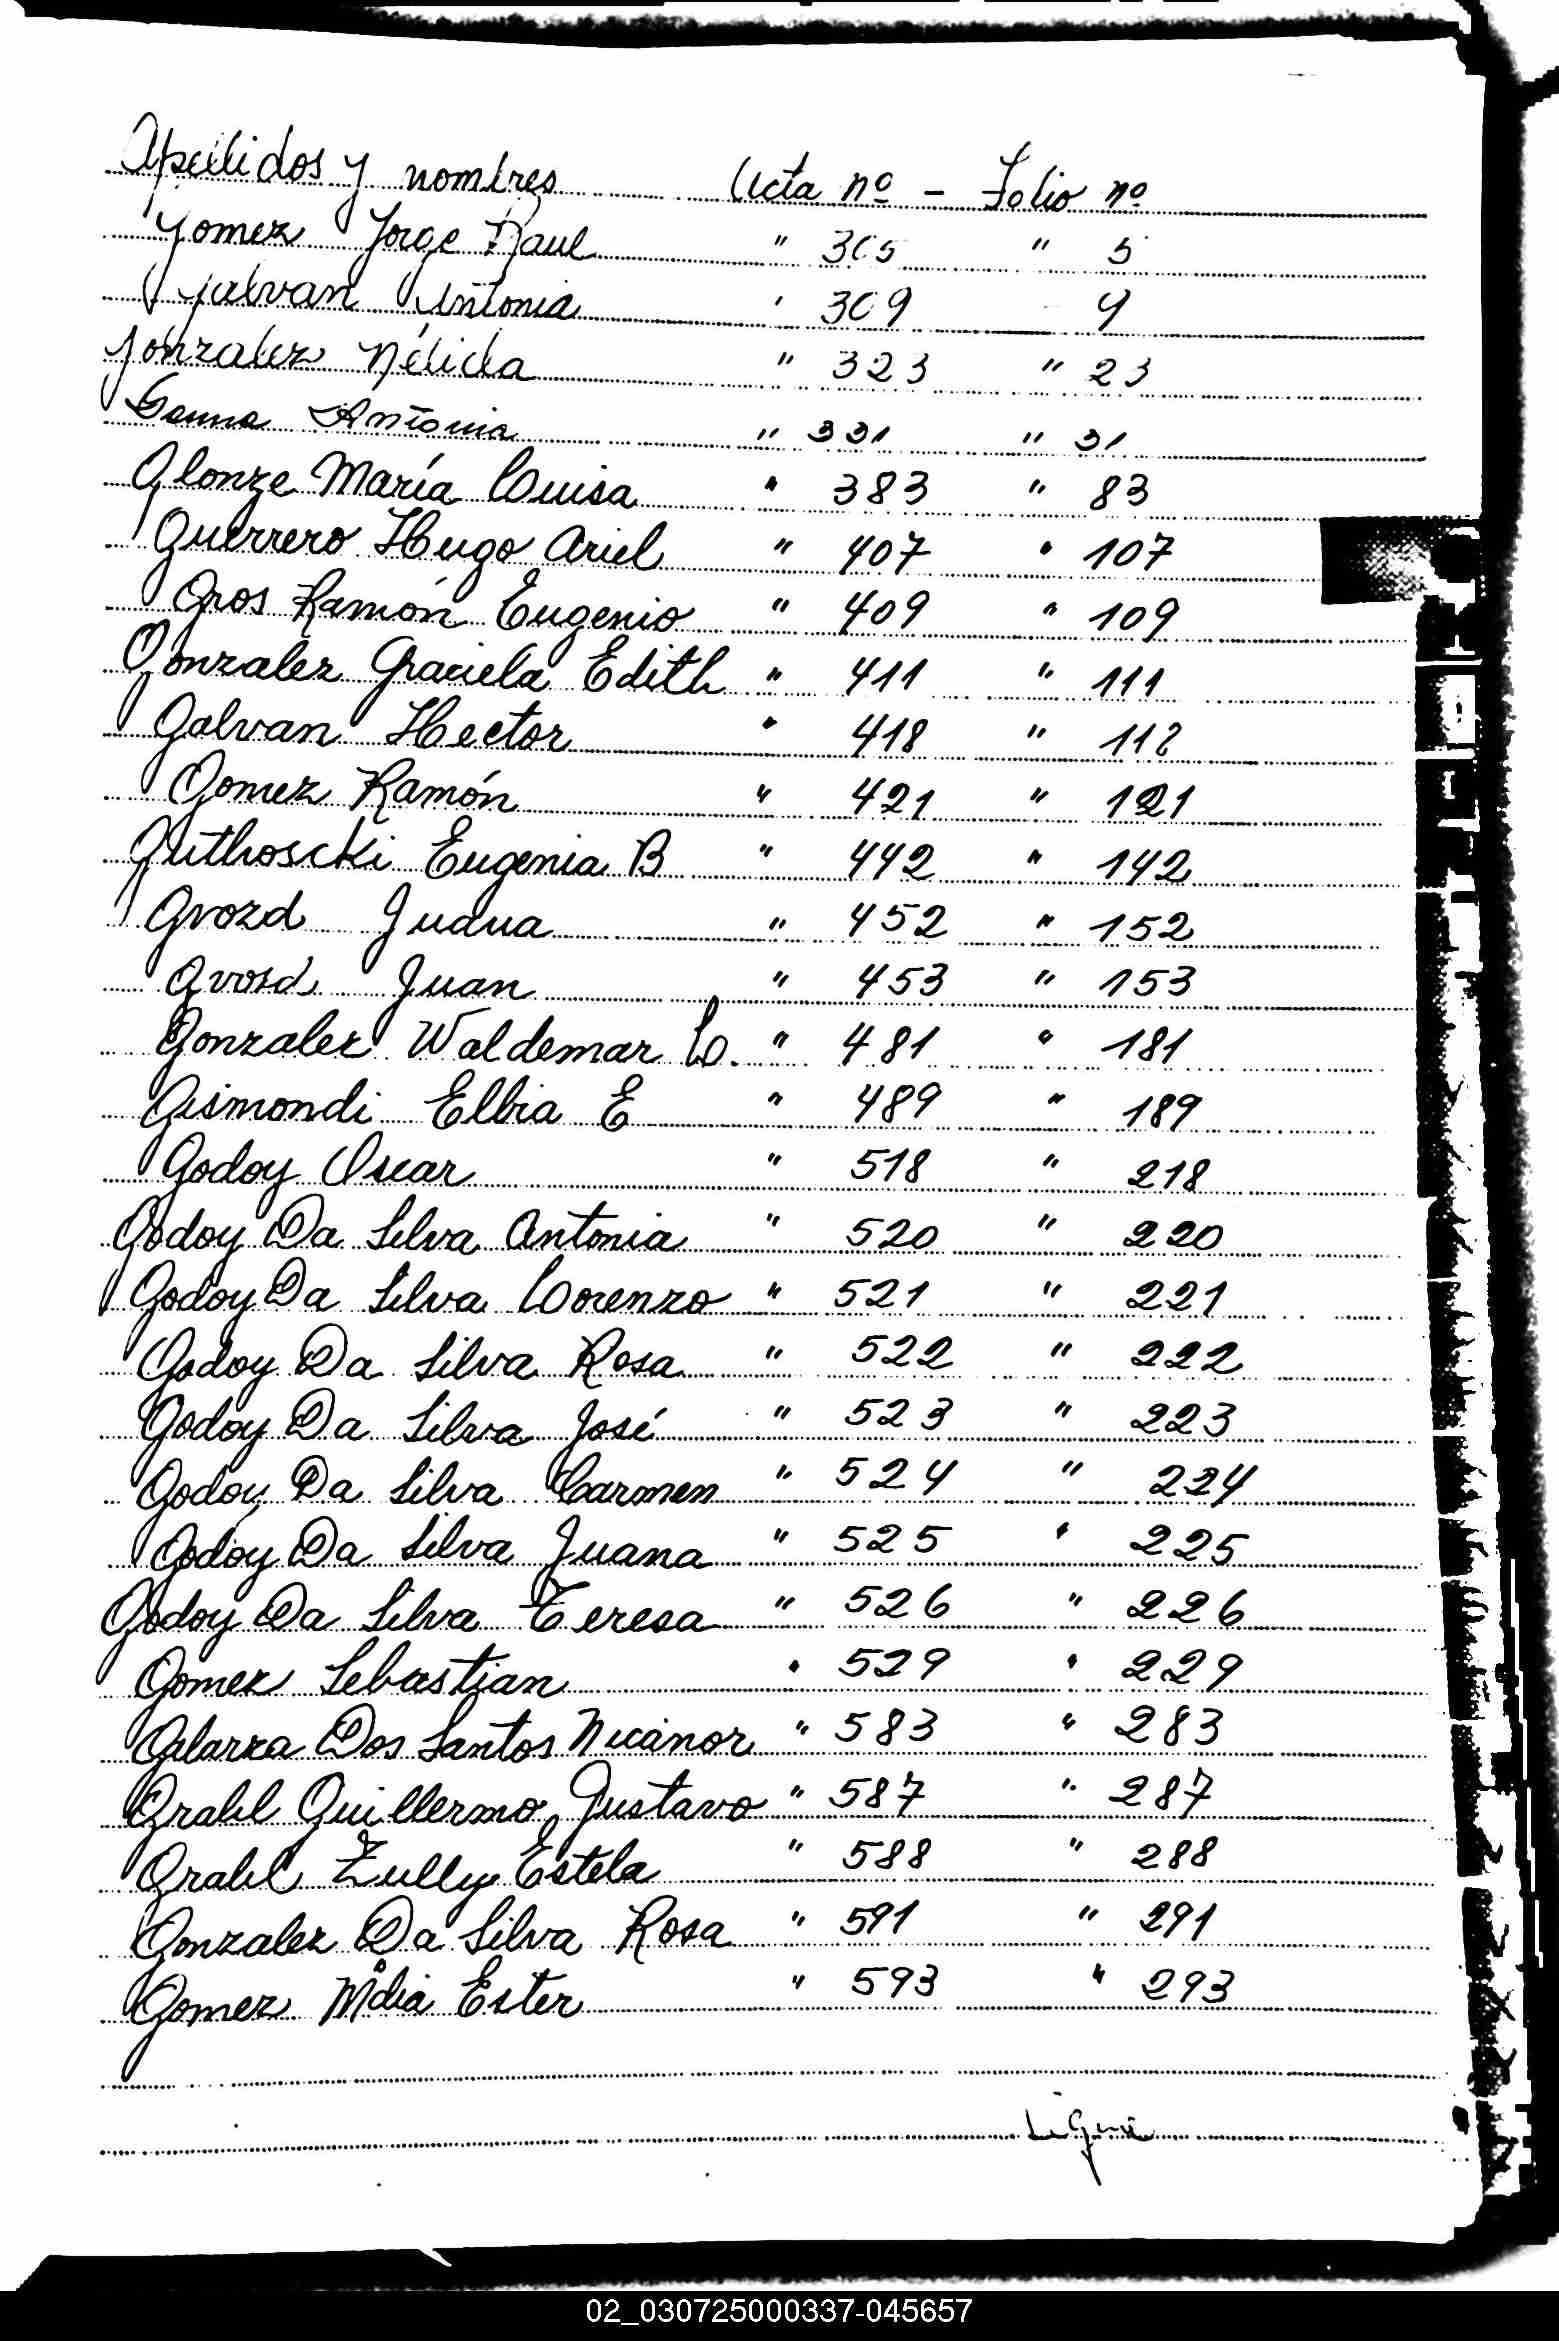 Apellidos y nombres Acta nº - Folio nº
Gomez Jorge Raul " 305 " 5
Galvan Antonia " 309 9
Gonzalez Nélida " 323 " 23
Antonia " 331 " 31
Glonze María Luisa " 383 " 83
Guerrero Hugo Ariel " 407 " 107
Gros Ramón Eugenio " 409 " 109
Gonzalez Graciela Edith " 411 " 111
Galvan Hector " 418 " 118
Gomez Ramón " 421 " 121
Guthoscki Eugenia B " 442 " 142
Gvozd Juana " 452 " 152
Gvosd Juan " 453 " 153
Gonzalez Waldemar L. " 481 " 181
Gismondi Elbia E " 489 " 189
Godoy Oscar " 518 " 218
Godoy Da Silva Antonia " 520 " 220
Godoy Da Silva Lorenzo " 521 " 221
Godoy Da Silva Rosa " 522 " 222
Godoy Da Silva José " 523 " 223
Godoy Da Silva Carmen " 524 " 224
Godoy Da Silva Juana " 525 " 225
Godoy Da Silva Teresa " 526 " 226
Gomez Sebastian " 529 " 229
Galarza Dos Santos Nicanor " 583 " 283
Grahl Guillermo Gustavo " 587 " 287
Grahl Zully Estela " 588 " 288
Gonzalez Da Silva Rosa " 591 " 291
Gomez Ester " 593 " 293
Sigue
02_030725000337-045657